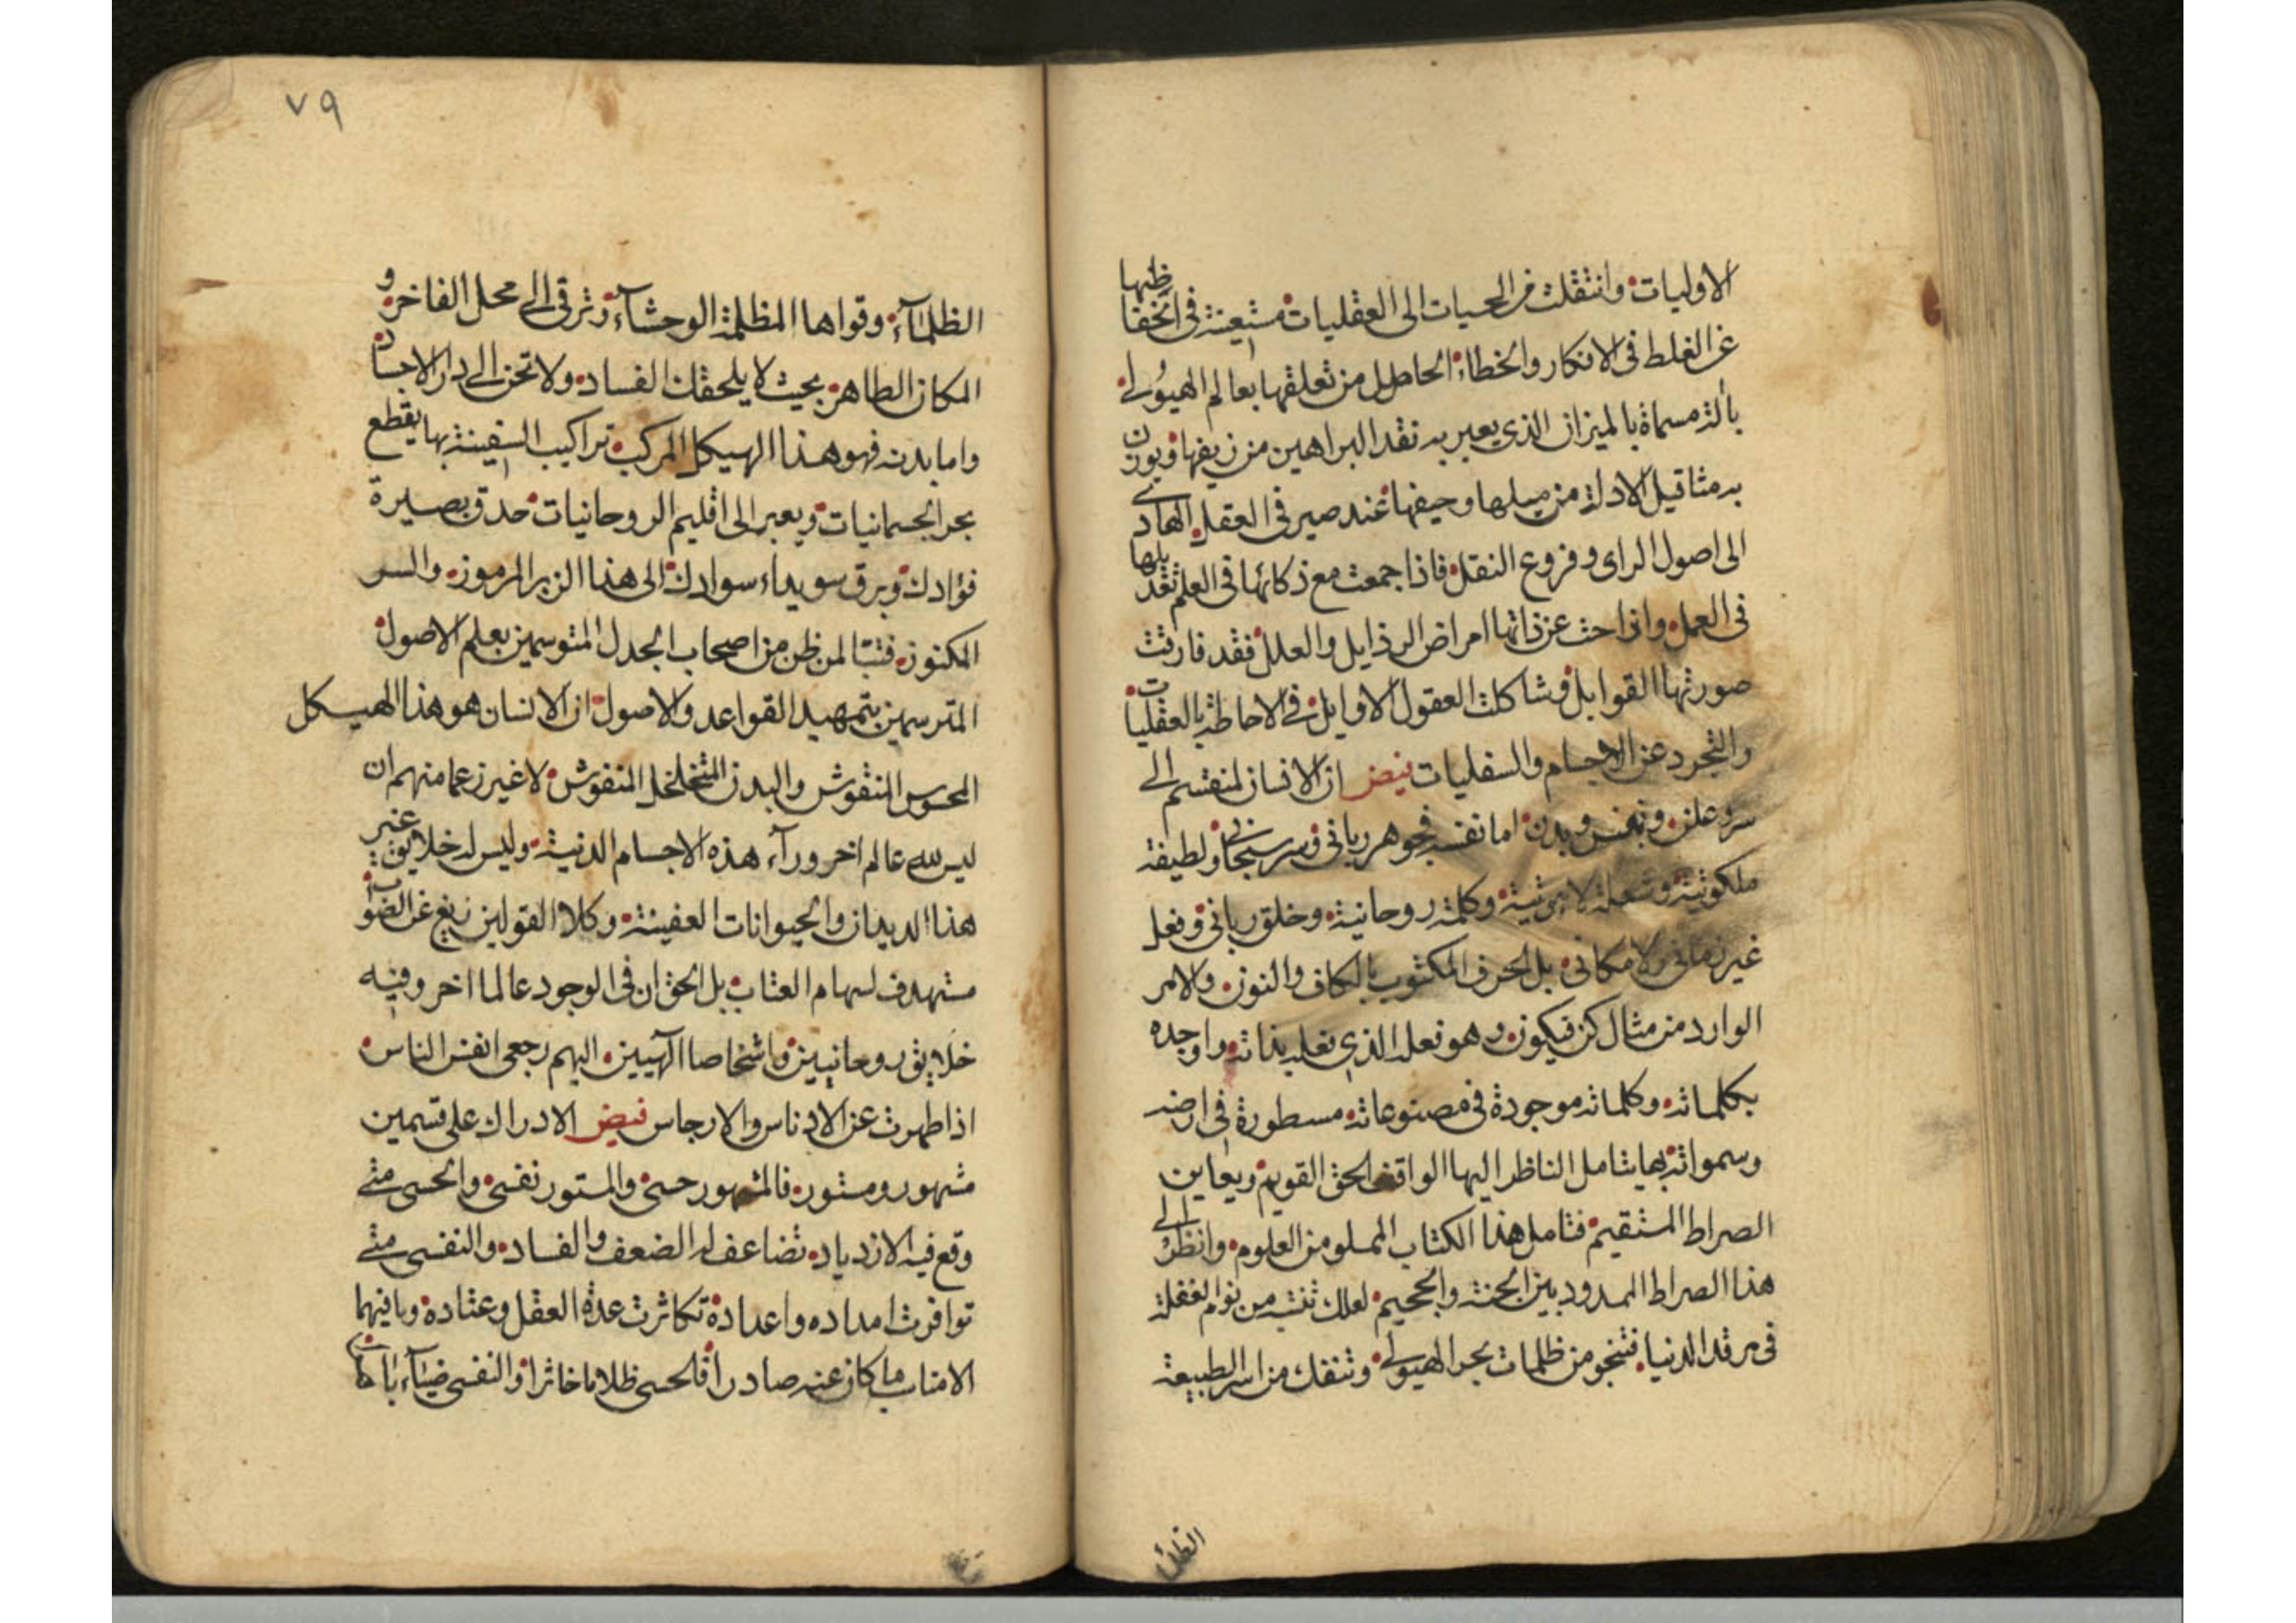 الاوليات وانتقلت من الحسيات الى العقليات مستعينة فى اتخفاظها
عن الغلط فى الافكار والخطاء الحاصل من تعلقها بعالم الهيولى
بآلة مسماة بالميزان الذى يعبر به نقد البراهين من زيفها ويوزن
به مثاقيل الادلة من ميلها وحيفها عند صيرفى العقل الهادى
الى اصول الراى وفروع النقل فاذا جمعت مع ذكائها فى العلم تعديلها
فى العمل وازاحت عن ذاتها امراض الرذايل والعلل فقد فارقت
صورتها القوابل وشاكلت العقول الاوايل فى الاحاطة بالعقليات
والتجرد عن الاجسام والسفليات فيض ان الانسان لمنقسم الى
سر وعلن ونفس وبدن اما نفسه فجوهر ربانى وسر سبحانى ولطيفة
ملكوتية وشعلة لاهوتية وكلمة روحانية وخلق ربانى وفعل
غير زمانى ولا مكانى بل الحرف المكتوب بالكاف والنون والامر
الوارد من مثال كن فيكون وهو فعله الذى فعله بذاته واوجده
بكلماته وكلماته موجودة فى مصنوعاته مسطورة فى ارضه
وسمواته بها يتامل الناظر اليها الواقف الحق القويم ويعاين
الصراط المستقيم فتامل هذا الكتاب المملو من العلوم وانظر الى
هذا الصراط الممدود بين الجنة والجحيم لعلك تنتبه من نوم الغفلة
فى مرقد الدنيا فتنجو من ظلمات بحر الهيولى وتنفك من اسر الطبيعة
الظلمآ
٧٩
الظلمآء وقواها المظلمة الوحشآء وترقى الى محل الفاخر و
المكان الطاهر بحيث لا يلحقك الفساد ولا تحن الى دار الاجساد
واما بدنه فهو هذا الهيكل المركب تراكيب السفينة بها يقطع
بحر الجسمانيات ويعبر الى اقليم الروحانيات حدق بصيرة
فؤادك وبرق سويداء سوادك الى هذا الزبر المرموز والسر
المكنوز فتبا لمن ظن من اصحاب الجدل المتوسمين بعلم الاصول
المترسمين بتمهيد القواعد والاصول ان الانسان هو هذا الهيكل
المحسوس المنقوش والبدن المتخلخل المنفوش لا غير زعما منهم ان
ليس لله عالم اخر ورآء هذه الاجسام الدنية وليس له خلايق غير
هذا الديدان والحيوانات العفينة وكلا القولين زيغ عن الصواب
مستهدف لسهام العتاب بل الحق ان فى الوجود عالما اخر وفيه
خلايق روحانيين واشخاصا آلهيين اليهم رجعى انفس الناس
اذا طهرت عن الادناس والارجاس فيض الادراك على قسمين
مشهور ومستور فالمشهور حسى والمستور نفسى والحسى متى
وقع فيه الازدياد تضاعف له الضعف والفساد والنفسى متى
توافرت امداده واعداده تكاثرت عدة العقل وعتاده وبافيهما
الامناسب ما كان عنه صادرا فلحسى ظلاما خاثرا والنفسى ضيآء